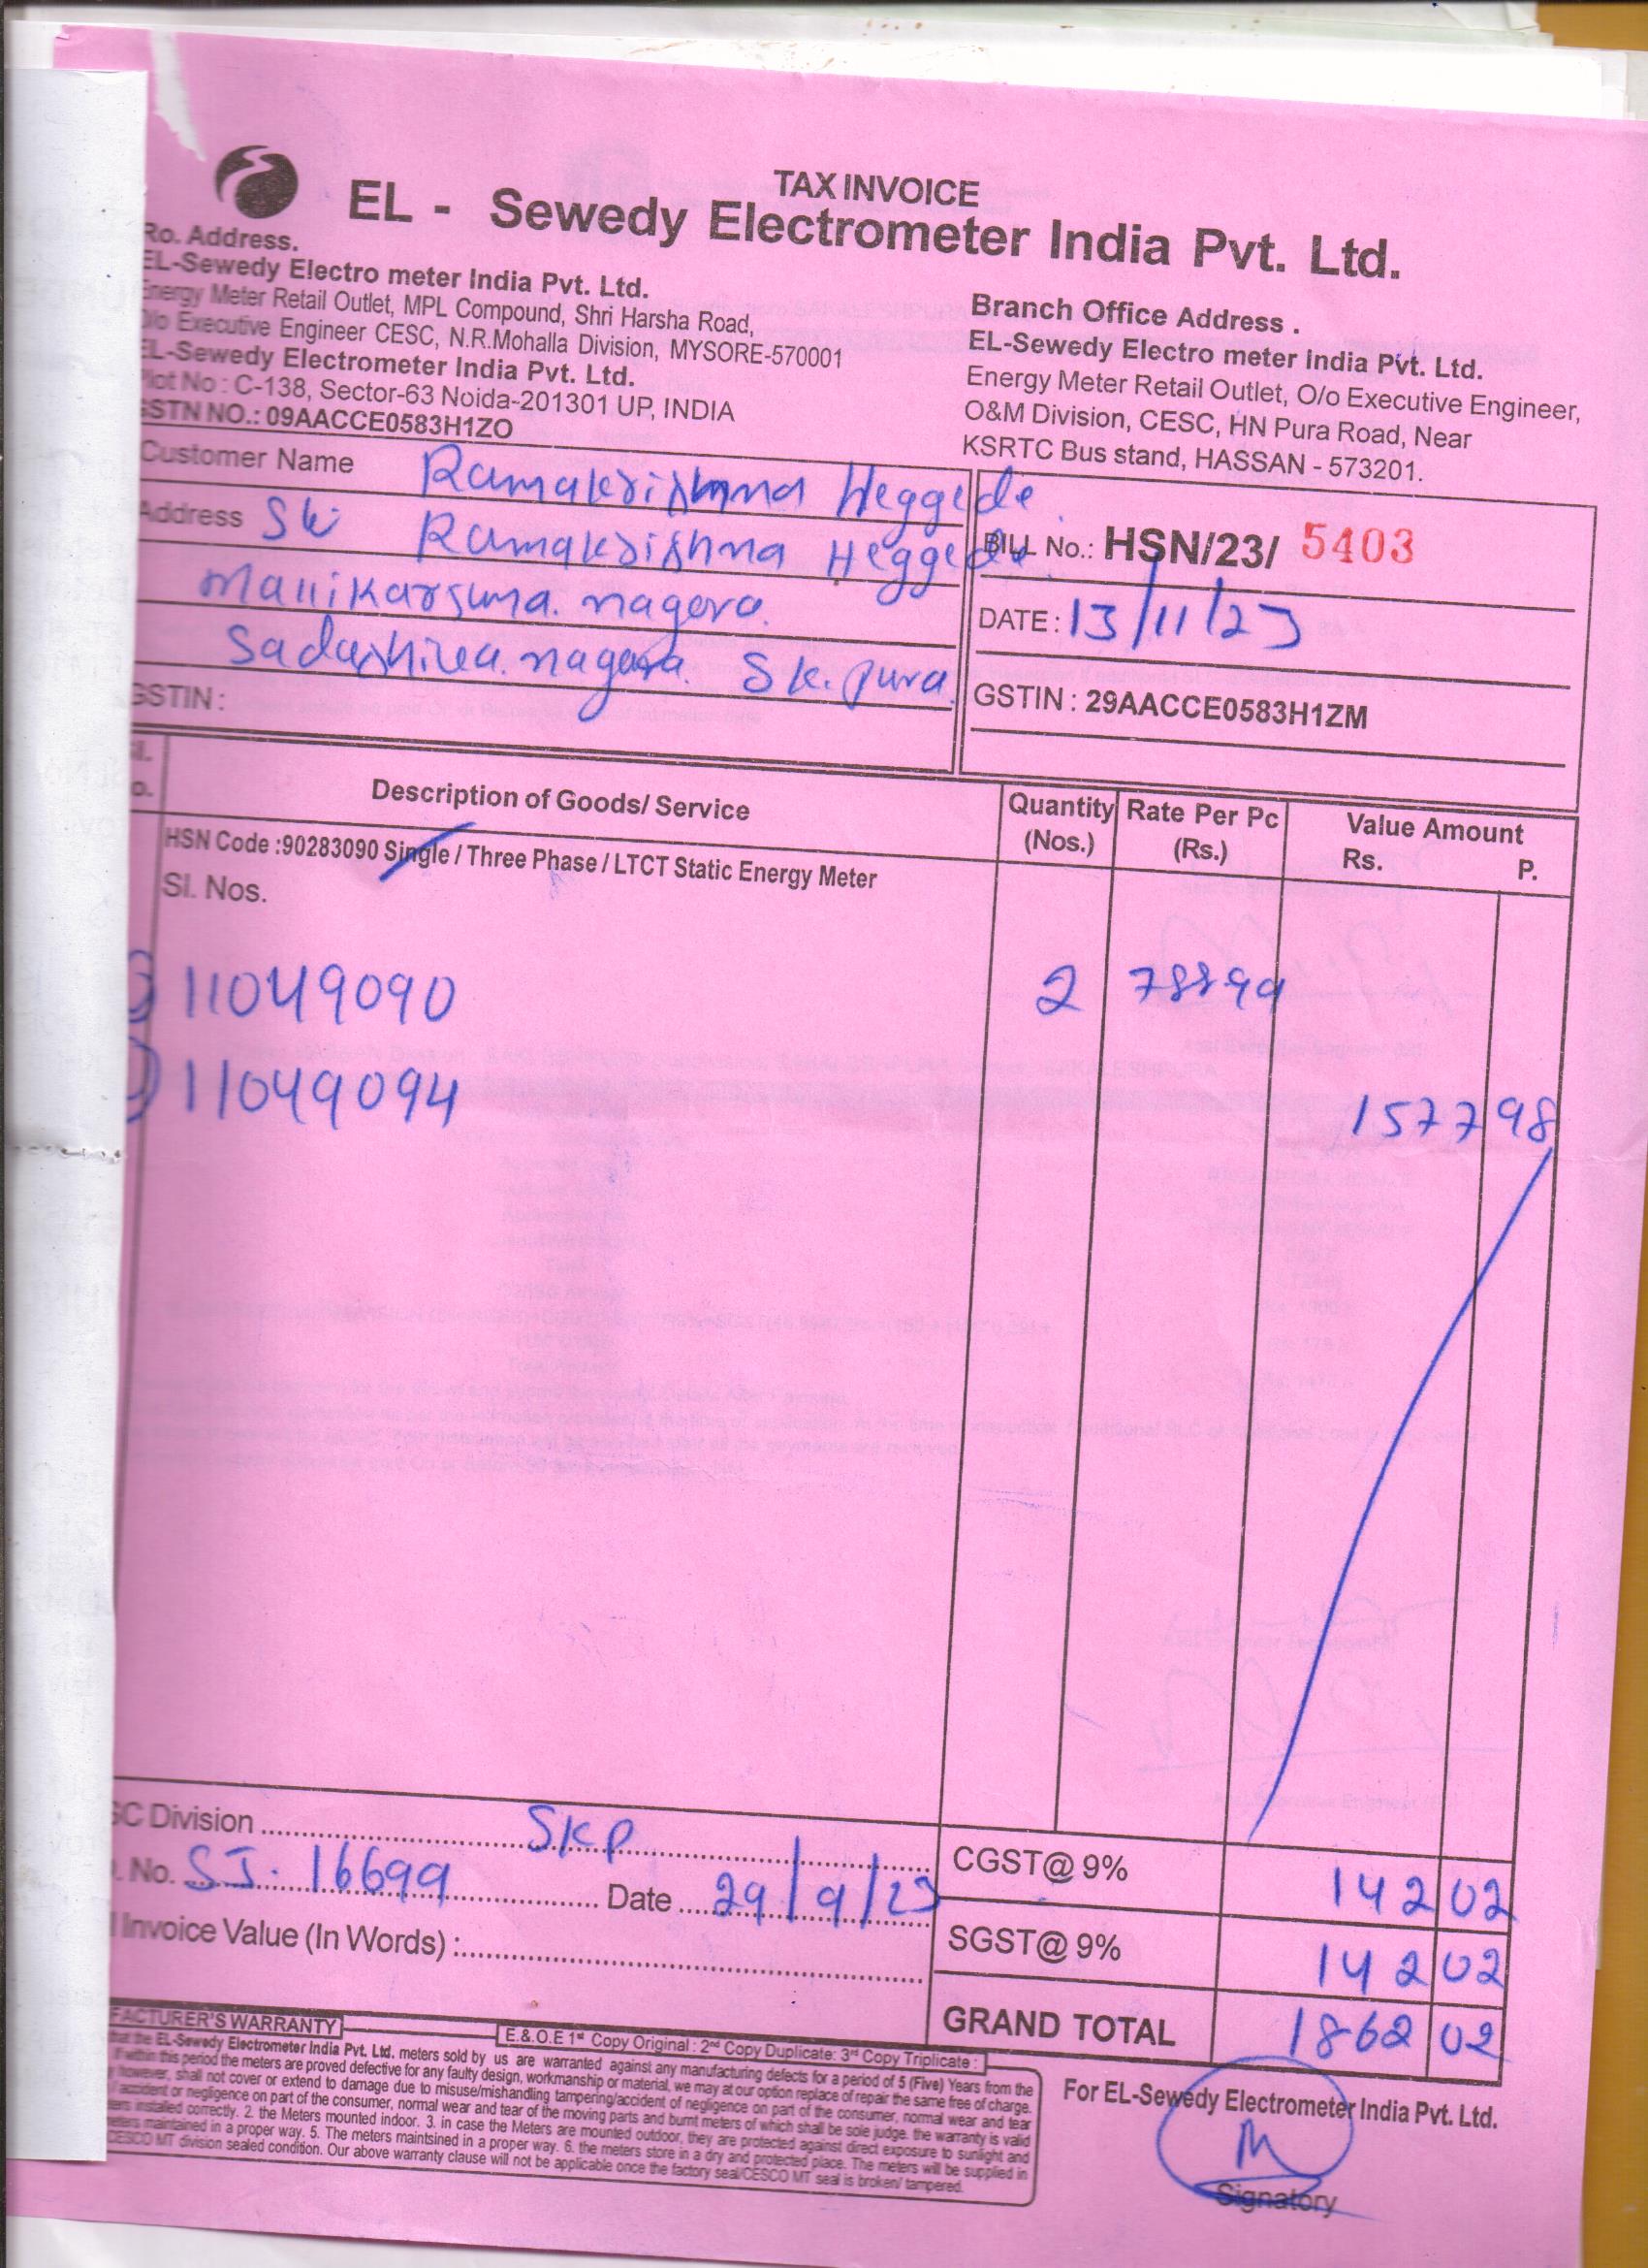 TAX INVOICE
EL - Sewedy Electrometer India Pvt. Ltd.
Ro. Address.
EL-Sewedy Electro meter India Pvt. Ltd.
Energy Meter Retail Outlet, MPL Compound, Shri Harsha Road,
O/o Executive Engineer CESC, N.R.Mohalla Division, MYSORE-570001
EL-Sewedy Electrometer India Pvt. Ltd.
Plot No : C-138, Sector-63 Noida-201301 UP, INDIA
GSTN NO.: 09AACCE0583H1ZO
Branch Office Address .
EL-Sewedy Electro meter India Pvt. Ltd.
Energy Meter Retail Outlet, O/o Executive Engineer,
O&M Division, CESC, HN Pura Road, Near
KSRTC Bus stand, HASSAN - 573201.
Customer Name Ramakrishna Heggede
Address Ramakrishna Heggede
Mallikarjuna. nagara.
Sadashiva. nagara. Sk. pura
GSTIN :
BILL No.: HSN/23/ 5403
DATE : 13/11/23
GSTIN : 29AACCE0583H1ZM
Description of Goods/ Service Quantity (Nos.) Rate Per Pc (Rs.) Value Amount Rs. P.
HSN Code :90283090 Single / Three Phase / LTCT Static Energy Meter
Sl. Nos.
11049090 2 78899
11049094
1577 98
SC Division SKP
No. SJ. 16699 Date 29/9/23
Invoice Value (In Words) :
CGST@ 9% 142 02
SGST@ 9% 142 02
GRAND TOTAL 1862 02
FACTURER'S WARRANTY
E.& O.E 1st Copy Original : 2nd Copy Duplicate: 3rd Copy Triplicate :
that the EL-Sewedy Electrometer India Pvt. Ltd. meters sold by us are warranted against any manufacturing defects for a period of 5 (Five) Years from the
if within this period the meters are proved defective for any faulty design, workmanship or material, we may at our option replace of repair the same free of charge.
however, shall not cover or extend to damage due to misuse/mishandling tampering/accident of negligence on part of the consumer, normal wear and tear
accident or negligence on part of the consumer, normal wear and tear of the moving parts and burnt meters of which shall be sole judge. the warranty is valid
installed correctly. 2. the Meters mounted indoor. 3. in case the Meters are mounted outdoor, they are protected against direct exposure to sunlight and
maintained in a proper way. 5. The meters maintsined in a proper way. 6. the meters store in a dry and protected place. The meters will be supplied in
CESCO MT division sealed condition. Our above warranty clause will not be applicable once the factory seal/CESCO MT seal is broken/ tampered.
For EL-Sewedy Electrometer India Pvt. Ltd.
Signatory